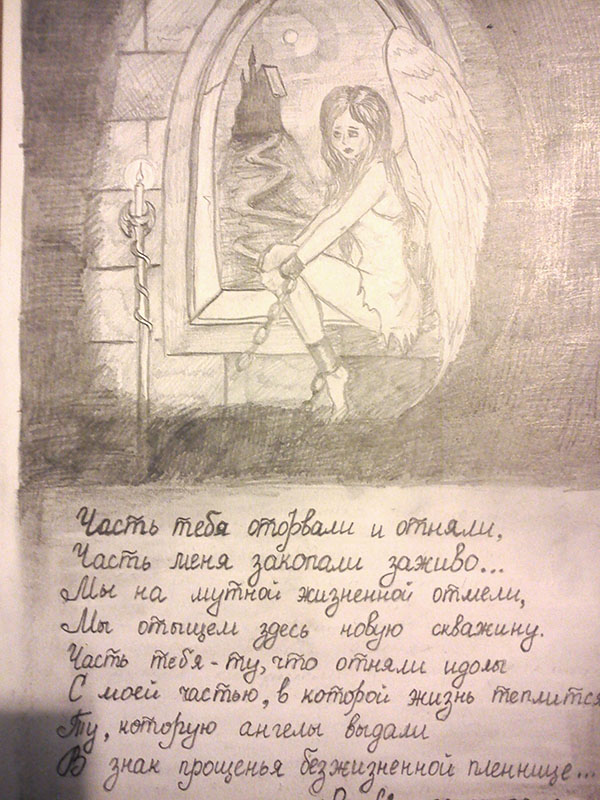 Часть тебя оторвали и отняли,
Часть меня закопали заживо...
Мы на мутной жизненной отмели,
Мы отыщем здесь новую скважину.
Часть тебя - ту, что отняли идолы
С моей частью, в которой жизнь теплится
Ту, которую ангелы выдали
В знак прощенья безжизненной пленнице...